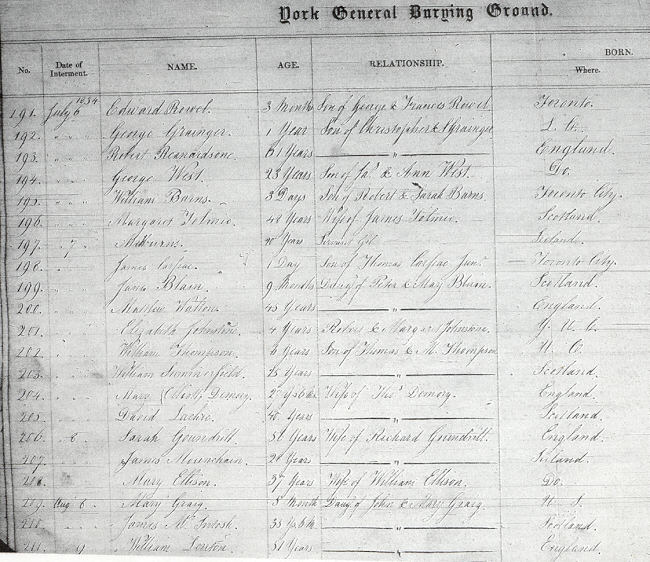 York General Burying Ground.
No. Date of Interment. NAME. AGE. RELATIONSHIP. BORN. Where.
191. July 6 1834 Edward Rowel. 3 Months Son of George & Frances Rowel. Toronto.
192. " " George Grainger. 1 Year Son of Christopher & Grainger L. C.
193. " " Robert 61 Years " England.
194. " " George West. 23 Years Son of Jas. & Ann West. Do.
195. " " William Burns. 3 Days Son of Robert & Sarah Burns. Toronto City.
196. " " Margaret Tolmie. 48 Years Wife of James Tolmie. Scotland.
197. " 7 Years Servant Girl. Ireland.
198. " " James 1 Day Son of Thomas Junr. Toronto City.
199. " " Jane Blain. 9 Months Daug. of Peter & Mary Blain. Scotland.
200. " " Matthew Watton. 45 Years " England.
201. " " Elizabeth Johnstone. 4 Years & Margaret Johnstone. U. C.
202. " " William Thompson. 6 Years Son of Thomas & M. Thompson U. C.
203. " " William 25 Years " Scotland.
204. " " Demory. Wife of Thos. Demory. England.
205. " " David 40 Years " Scotland.
206. " 8 Sarah Goundrill. 51 Years Wife of Richard Goundrill. England.
207. " " James 28 Years " Ireland.
208. " " Mary Ellison. 37 Years Wife of William Ellison. Do.
209. Aug 8. Mary Graig. 5 Month Daug. of John & Mary Graig. U. S.
210. " " James McIntosh. 35 " Scotland.
211. " 9 William 51 Years " England.